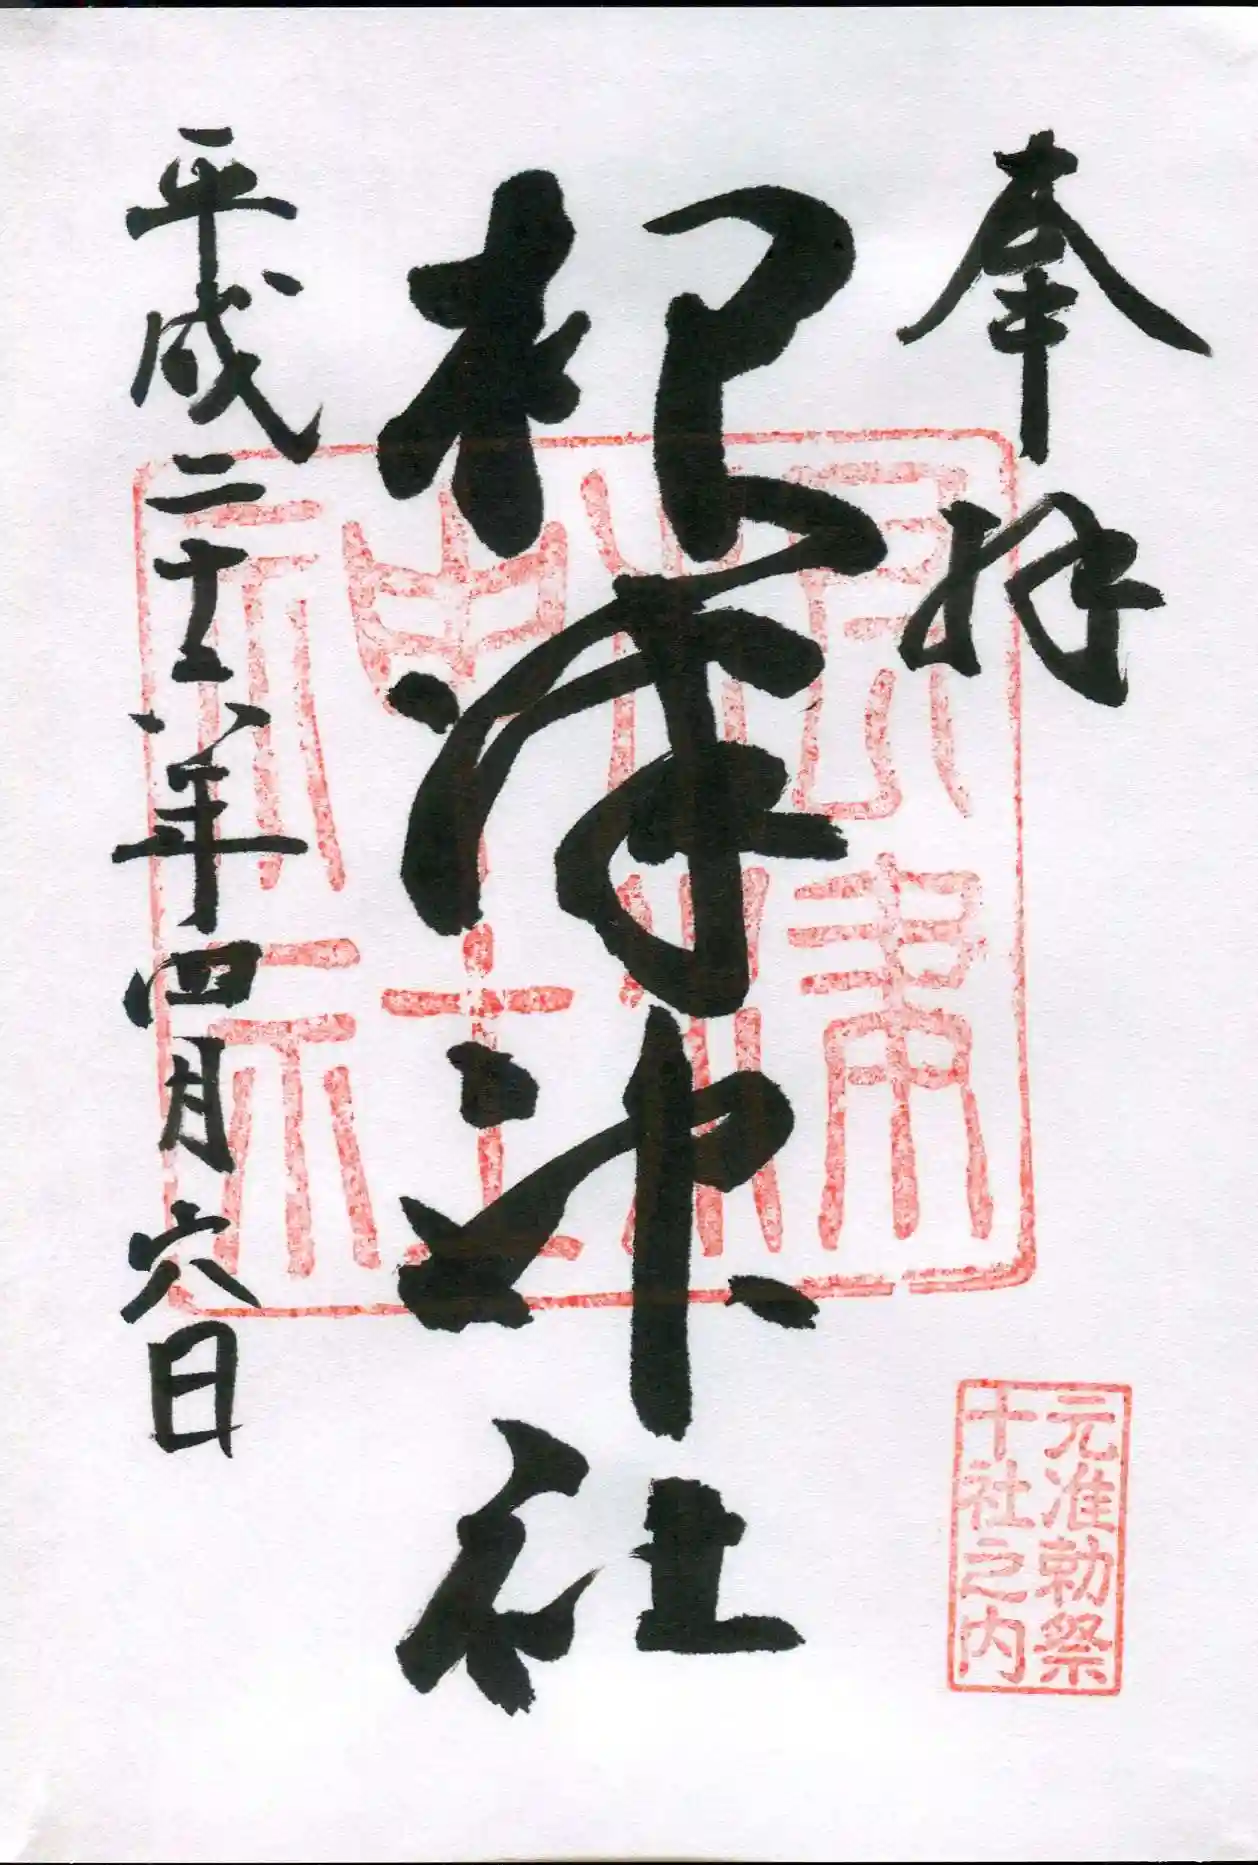 奉拝
根津神社
平成二十六年四月六日
根津
神社
元准勅祭
十社之内